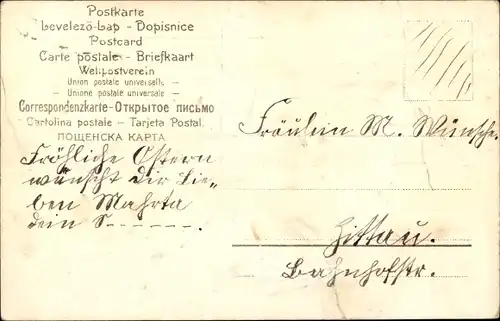 Postkarte
Levelezö-Lap - Dopisnice
Postcard
Carte postale - Briefkaart
Weltpostverein
Union postale universelle —
— Unione postale universale —
Correspondenzkarte - Открытое письмо
Cartolina postale - Tarjeta Postal.
ПОЩЕНСКА КАРТА
Fröhliche Ostern
wünscht dir Lie-
ben Mahrta
dein S------.
Fräulein M. Wünsche.
Zittau.
Bahnhofstr.